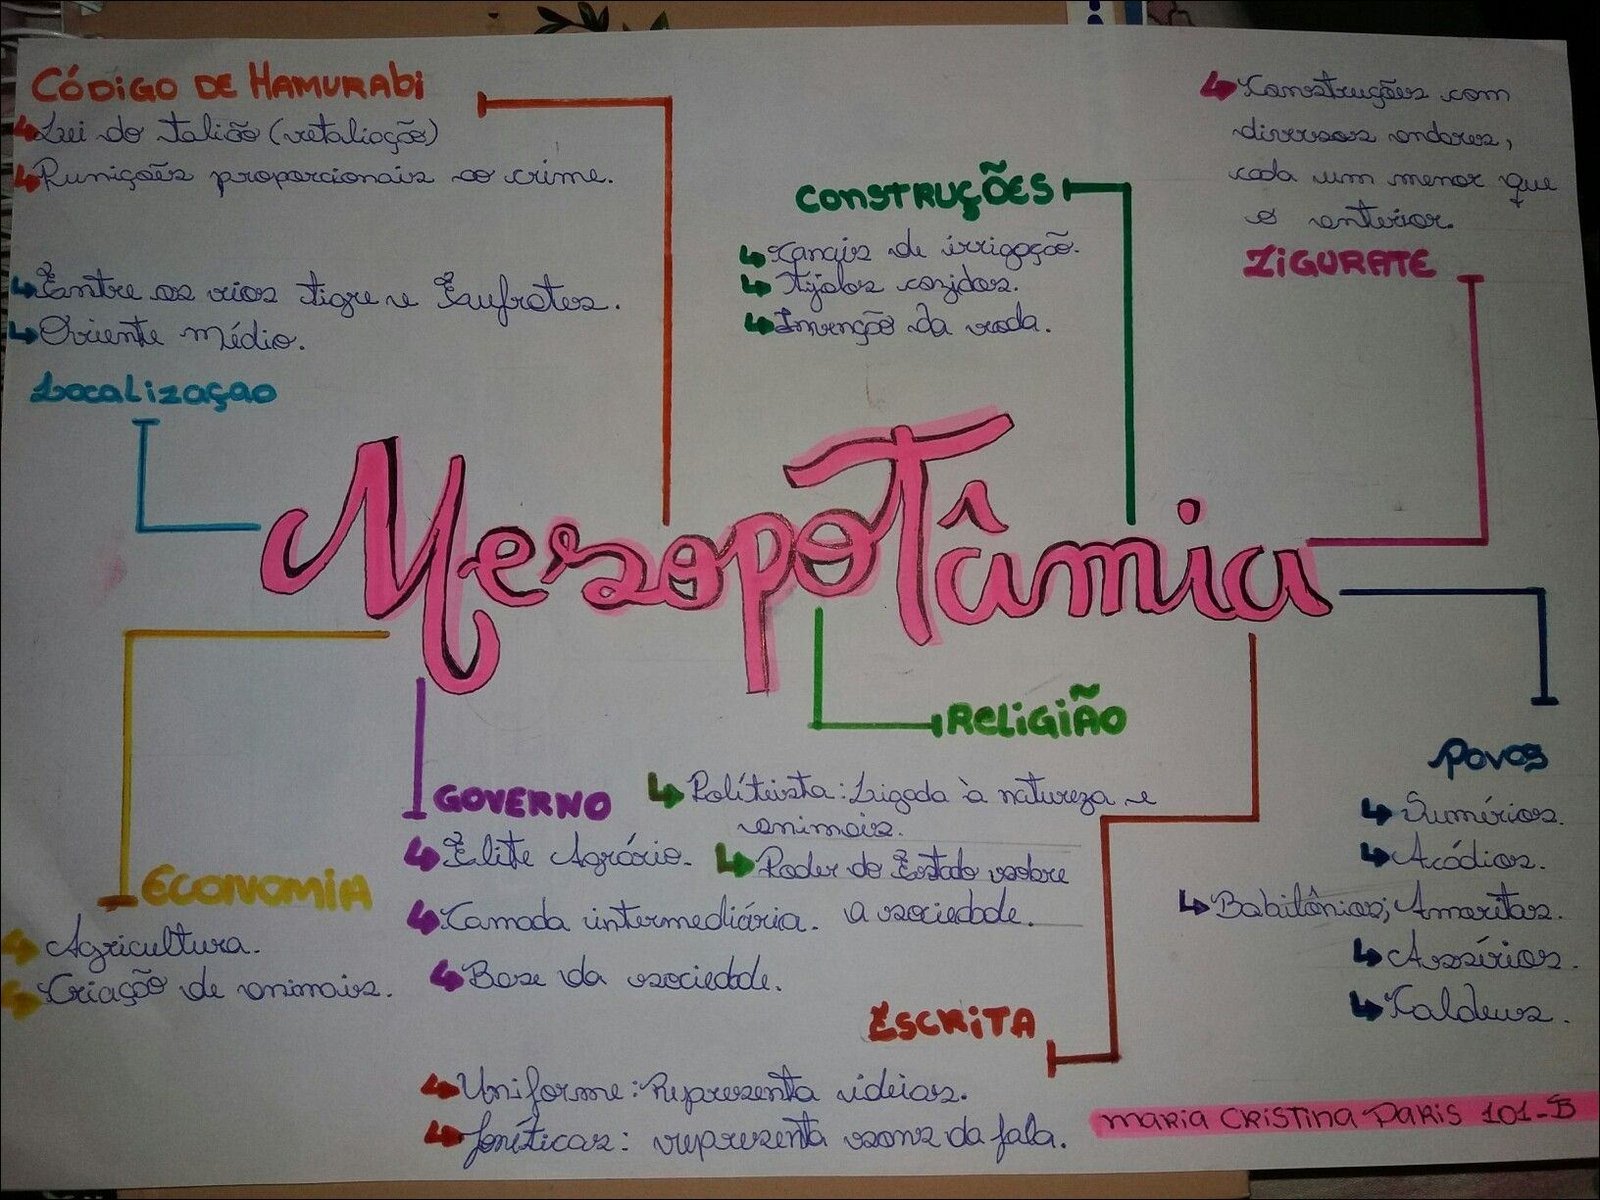 CÓDIGO DE HAMURABI
Lei do talião (retaliação)
Punições proporcionais ao crime.
Entre os rios tigre e Eufrates.
Oriente médio.
Localização
CONSTRUÇÕES
Canais de irrigação.
Tijolos cozidos.
Invenção da roda.
Construções com
diversos andares,
cada um menor que
o anterior.
ZIGURATE
MesopoTâmia
ECONOMIA
Agricultura.
Criação de animais.
GOVERNO
Elite Agrário.
Camada intermediária.
Base da sociedade.
RELIGIÃO
Políteista: Ligada à natureza e
animais.
Poder do Estado sobre
a sociedade.
ESCRITA
Uniforme: Representa idéias.
fonéticas: representa sons da fala.
Povos
Sumérios.
Acádios.
Babilônios; Amoritas.
Assírios.
Caldeus.
MARIA CRISTINA PARIS 101-B